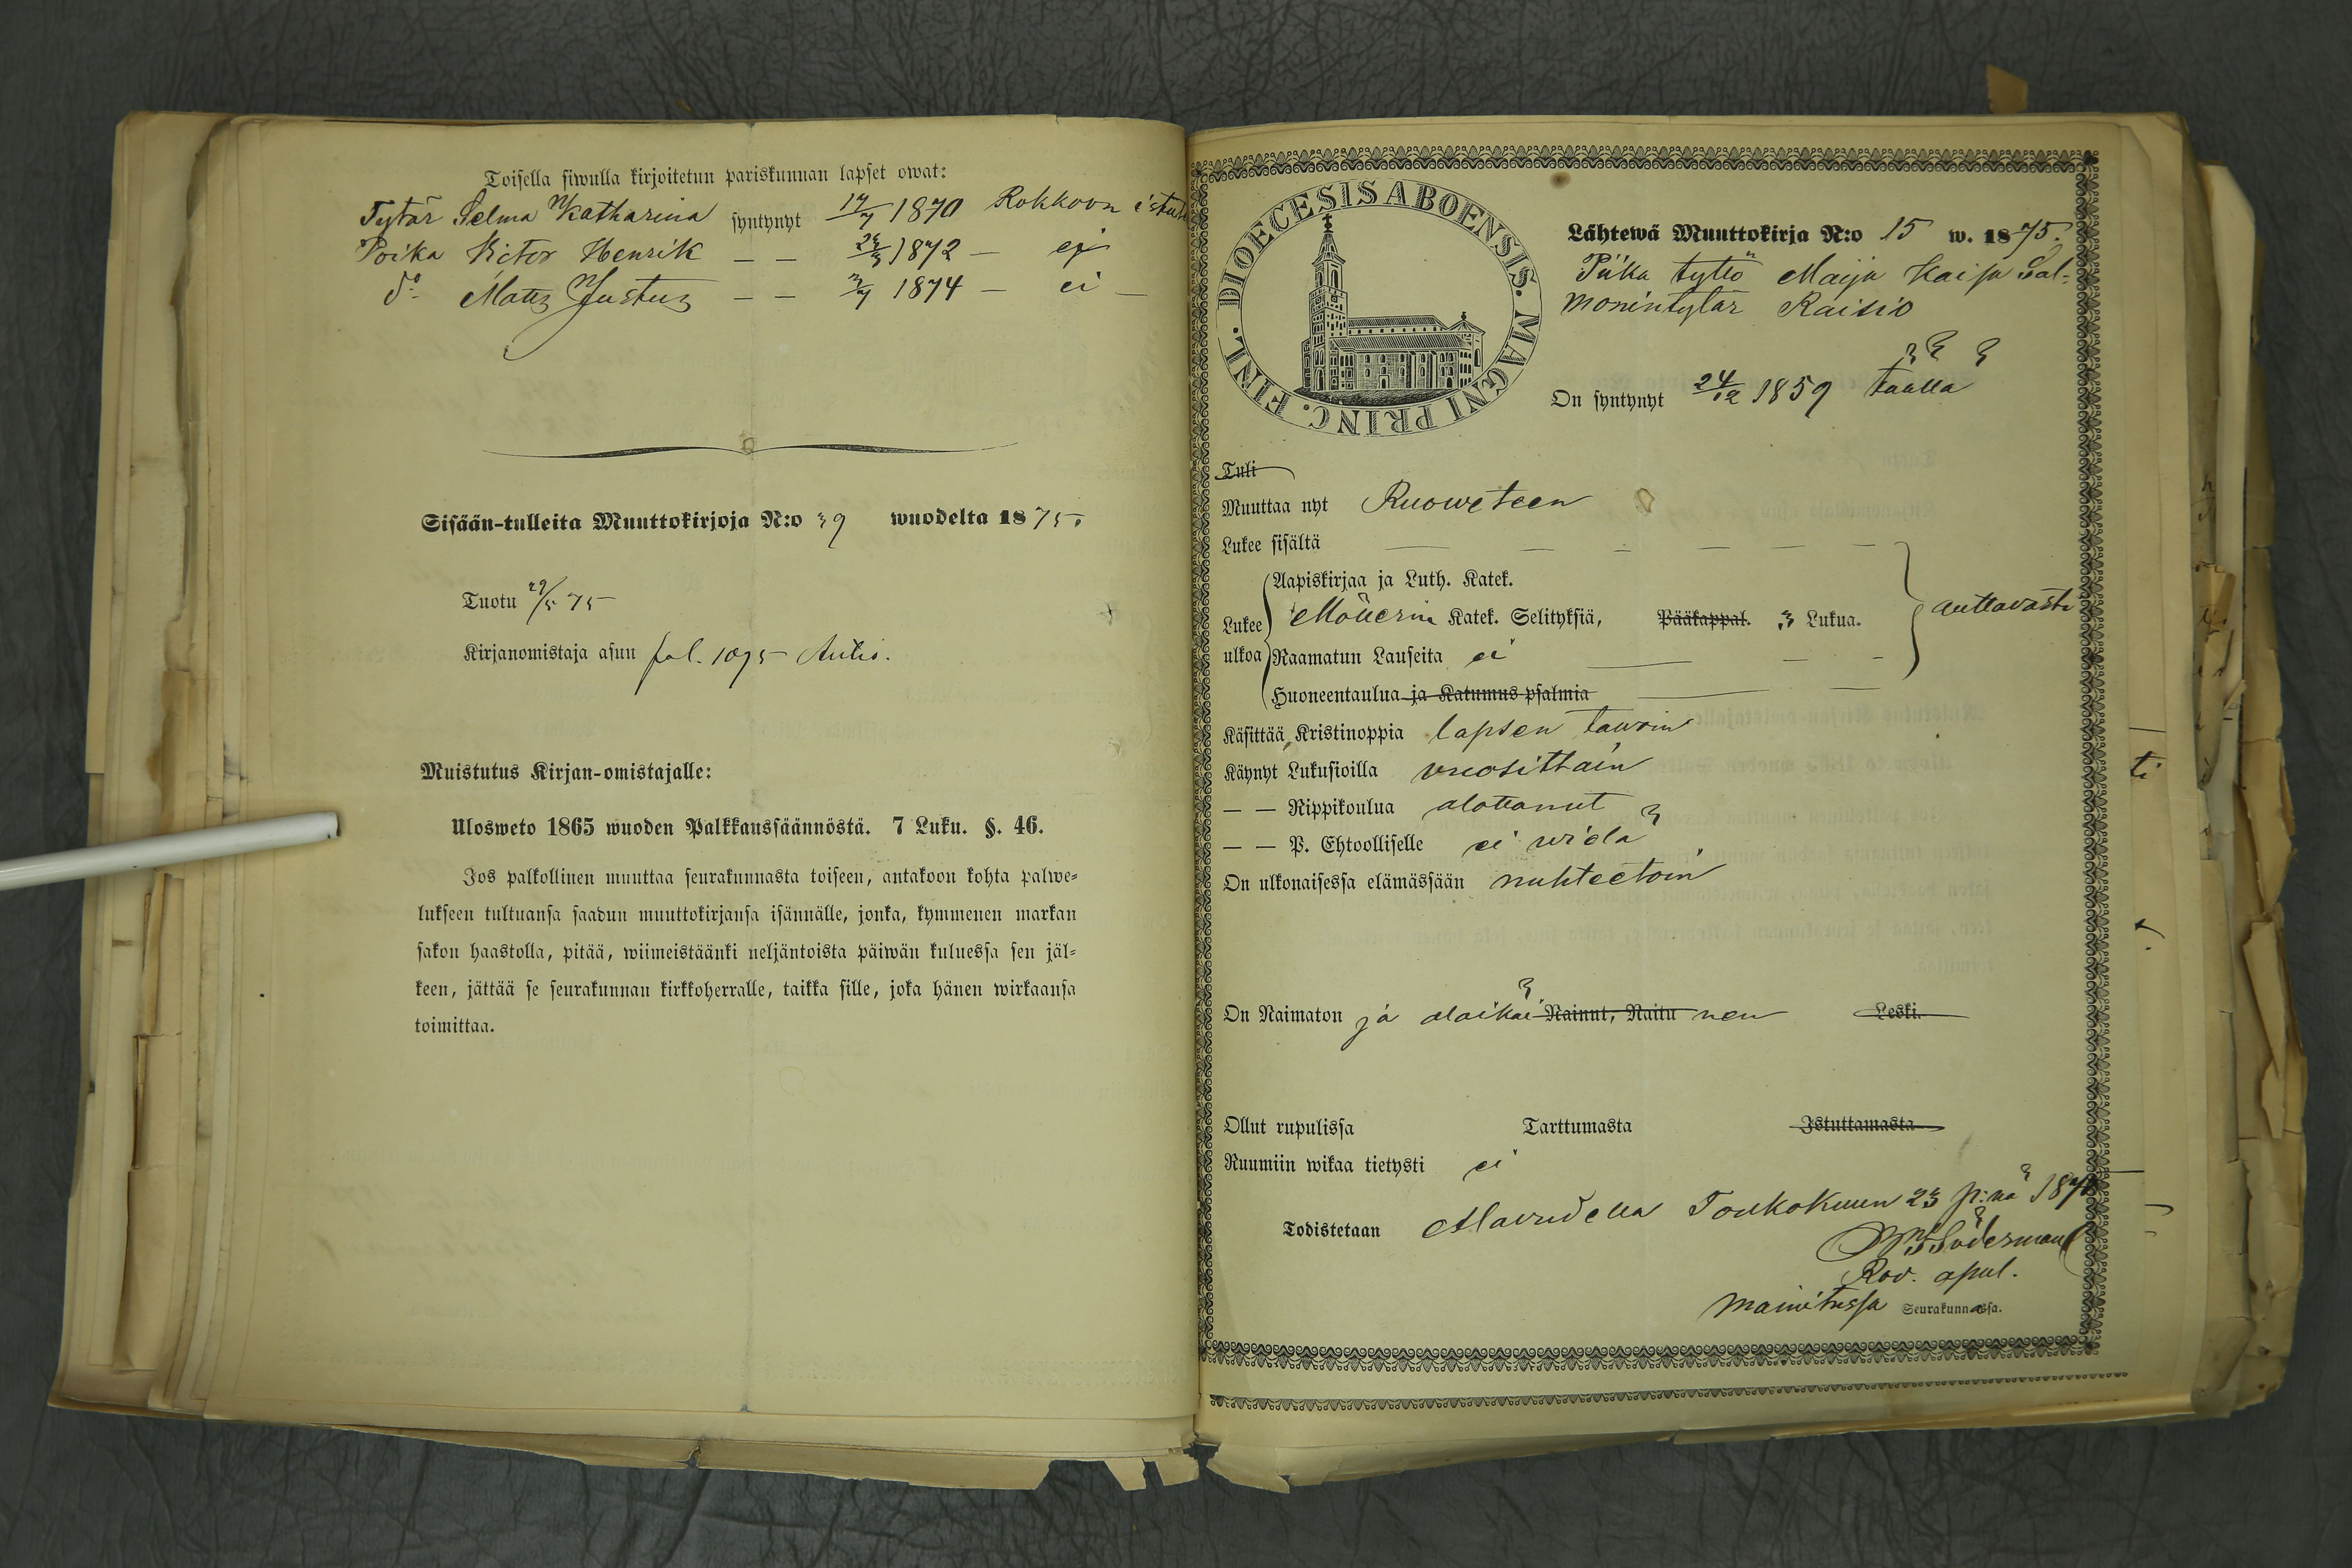 Toisella siwulla kirjoitetun pariskunnan lapset owat:
Tytär Selma Katharina syntynyt 17/7 1870 Rokkoon istut
Poika Victor Henrik — — 24/3 1872 — ej
d:o Matts Justus — — 3/7 1874 — ei —
Sisään-tulleita Muuttokirjoja N:o 39 wuodelta 1875.
Tuotu 29/5 75
Kirjanomistaja asuu fol. 1095 Autio.
Muistutus Kirjan-omistajalle:
Ulosweto 1865 wuoden Palkkaussäännöstä. 7 Luku. §. 46.
Jos palkollinen muuttaa seurakunnasta toiseen, antakoon kohta palwe=
lukseen tultuansa saadun muuttokirjansa isännälle, jonka, kymmenen markan
sakon haastolla, pitää, wiimeistäänki neljäntoista päiwän kuluessa sen jäl=
keen, jättää se seurakunnan kirkkoherralle, taikka sille, joka hänen wirkaansa
toimittaa.
DIOECESIS ABOENSIS. MAGNI PRINC. FINL.
Lähtewä Muuttokirja N:o 15 w. 1875.
Piika tyttö Maija Kaisa Sal=
monintytär Raisio
On syntynyt 24/12 1859 täällä
Tuli
Muuttaa nyt Ruoweteen
Lukee sisältä — — — — — —
Aapiskirjaa ja Luth. Katek.
Lukee Möllerin Katek. Selityksiä, Pääkappal. 3 Lukua. auttavasti
ulkoa Raamatun Lauseita ei — — —
Huoneentaulua ja Katumus psalmia — —
Käsittää Kristinoppia lapsen tavoin
Käynyt Lukusioilla vuosittain
— — Rippikoulua alottanut
— — P. Ehtoolliselle ei wielä
On ulkonaisessa elämässään nuhteetoin
On Naimaton ja alaikäi Nainut, Naitu nen Leski.
Ollut rupulissa Tarttumasta Istuttamasta
Ruumiin wikaa tietysti ei
Todistetaan Alavudella Toukokuun 23 p:nä 1875
Söderman
Rov. apul.
mainitussa Seurakunnassa.